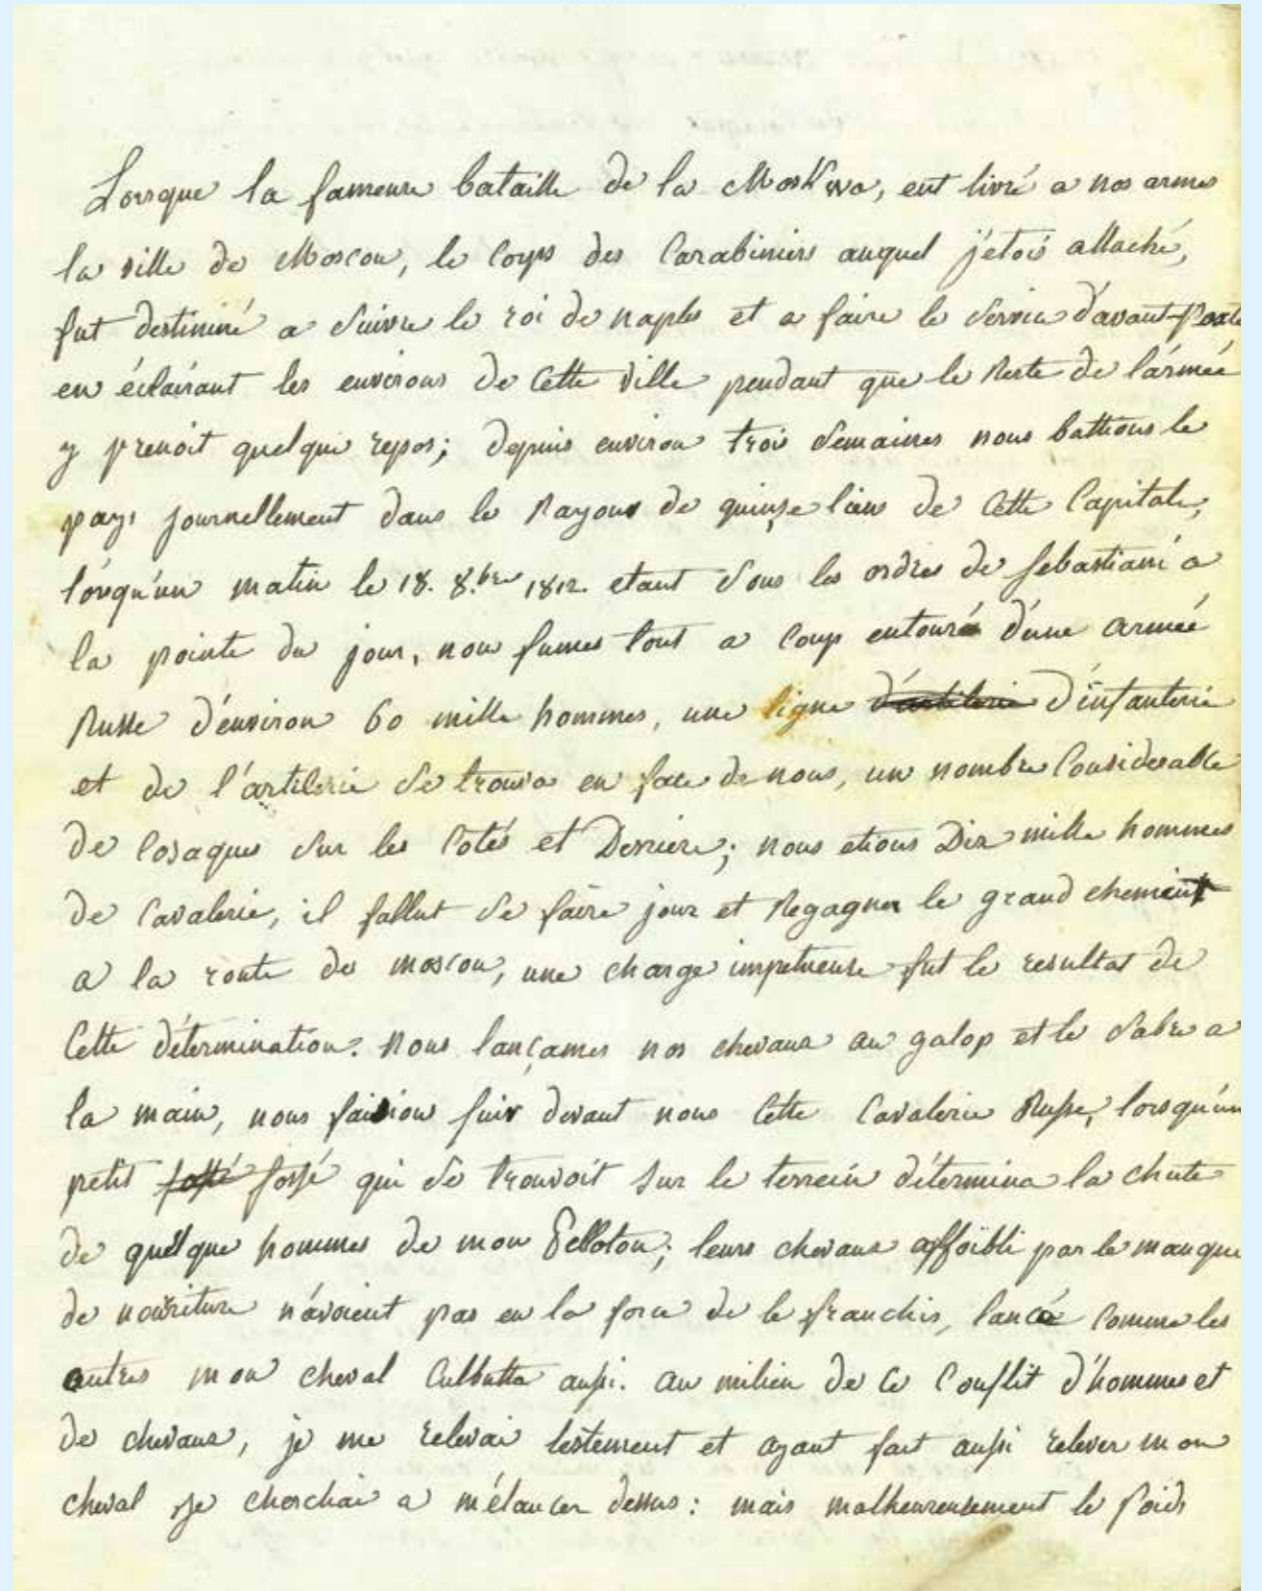 Lorsque la fameuse bataille de la Moskwa, eut livré a nos armes
la ville de Moscou, le Corps des Carabiniers auquel j'étois attaché,
fut destininé a suivre le roi de naples et a faire le service d'avant-Poste
en éclairant les environs de Cette ville pendant que le Reste de l'armée
y prenoit quelque repos; depuis environ trois semaines nous battions le
pays journellement dans le Rayons de quinze lieus de Cette Capitale,
lorsqu'un matin le 18. 8.bre 1812. etant sous les ordres de Sebastiani a
la pointe du jour, nous fumes tout a Coup entouré d'une armée
Russe d'environ 60 mille hommes, une ligne d'artilerie d'infanterie
et de l'artilerie se trouva en face de nous, un nombre Considerable
de Cosaques sur les Cotés et Derriere; nous etions Dix mille hommes
de Cavalerie, il fallut se faire jour et Regagner le grand chemin
a la route de moscou, une charge impetueuse fut le resultat de
Cette détermination. Nous lançames nos chevaux au galop et le sabre a
la main, nous faision fuir devant nous Cette Cavalerie Russe, lorsqu'un
petit fossé fossé qui se trouvoit sur le terrein détermina la chute
de quelque hommes de mon Pelloton; leurs chevaux affoibli par le manque
de nouriture n'avoient pas eu la force de le franchir, lancé Comme les
autres mon cheval Culbutta aussi. au milieu de Ce Conflit d'hommes et
de chevaux, je me relevai lestement et ayant fait aussi relever mon
cheval je cherchai a m'élancer dessus: mais malheureusement le Poids